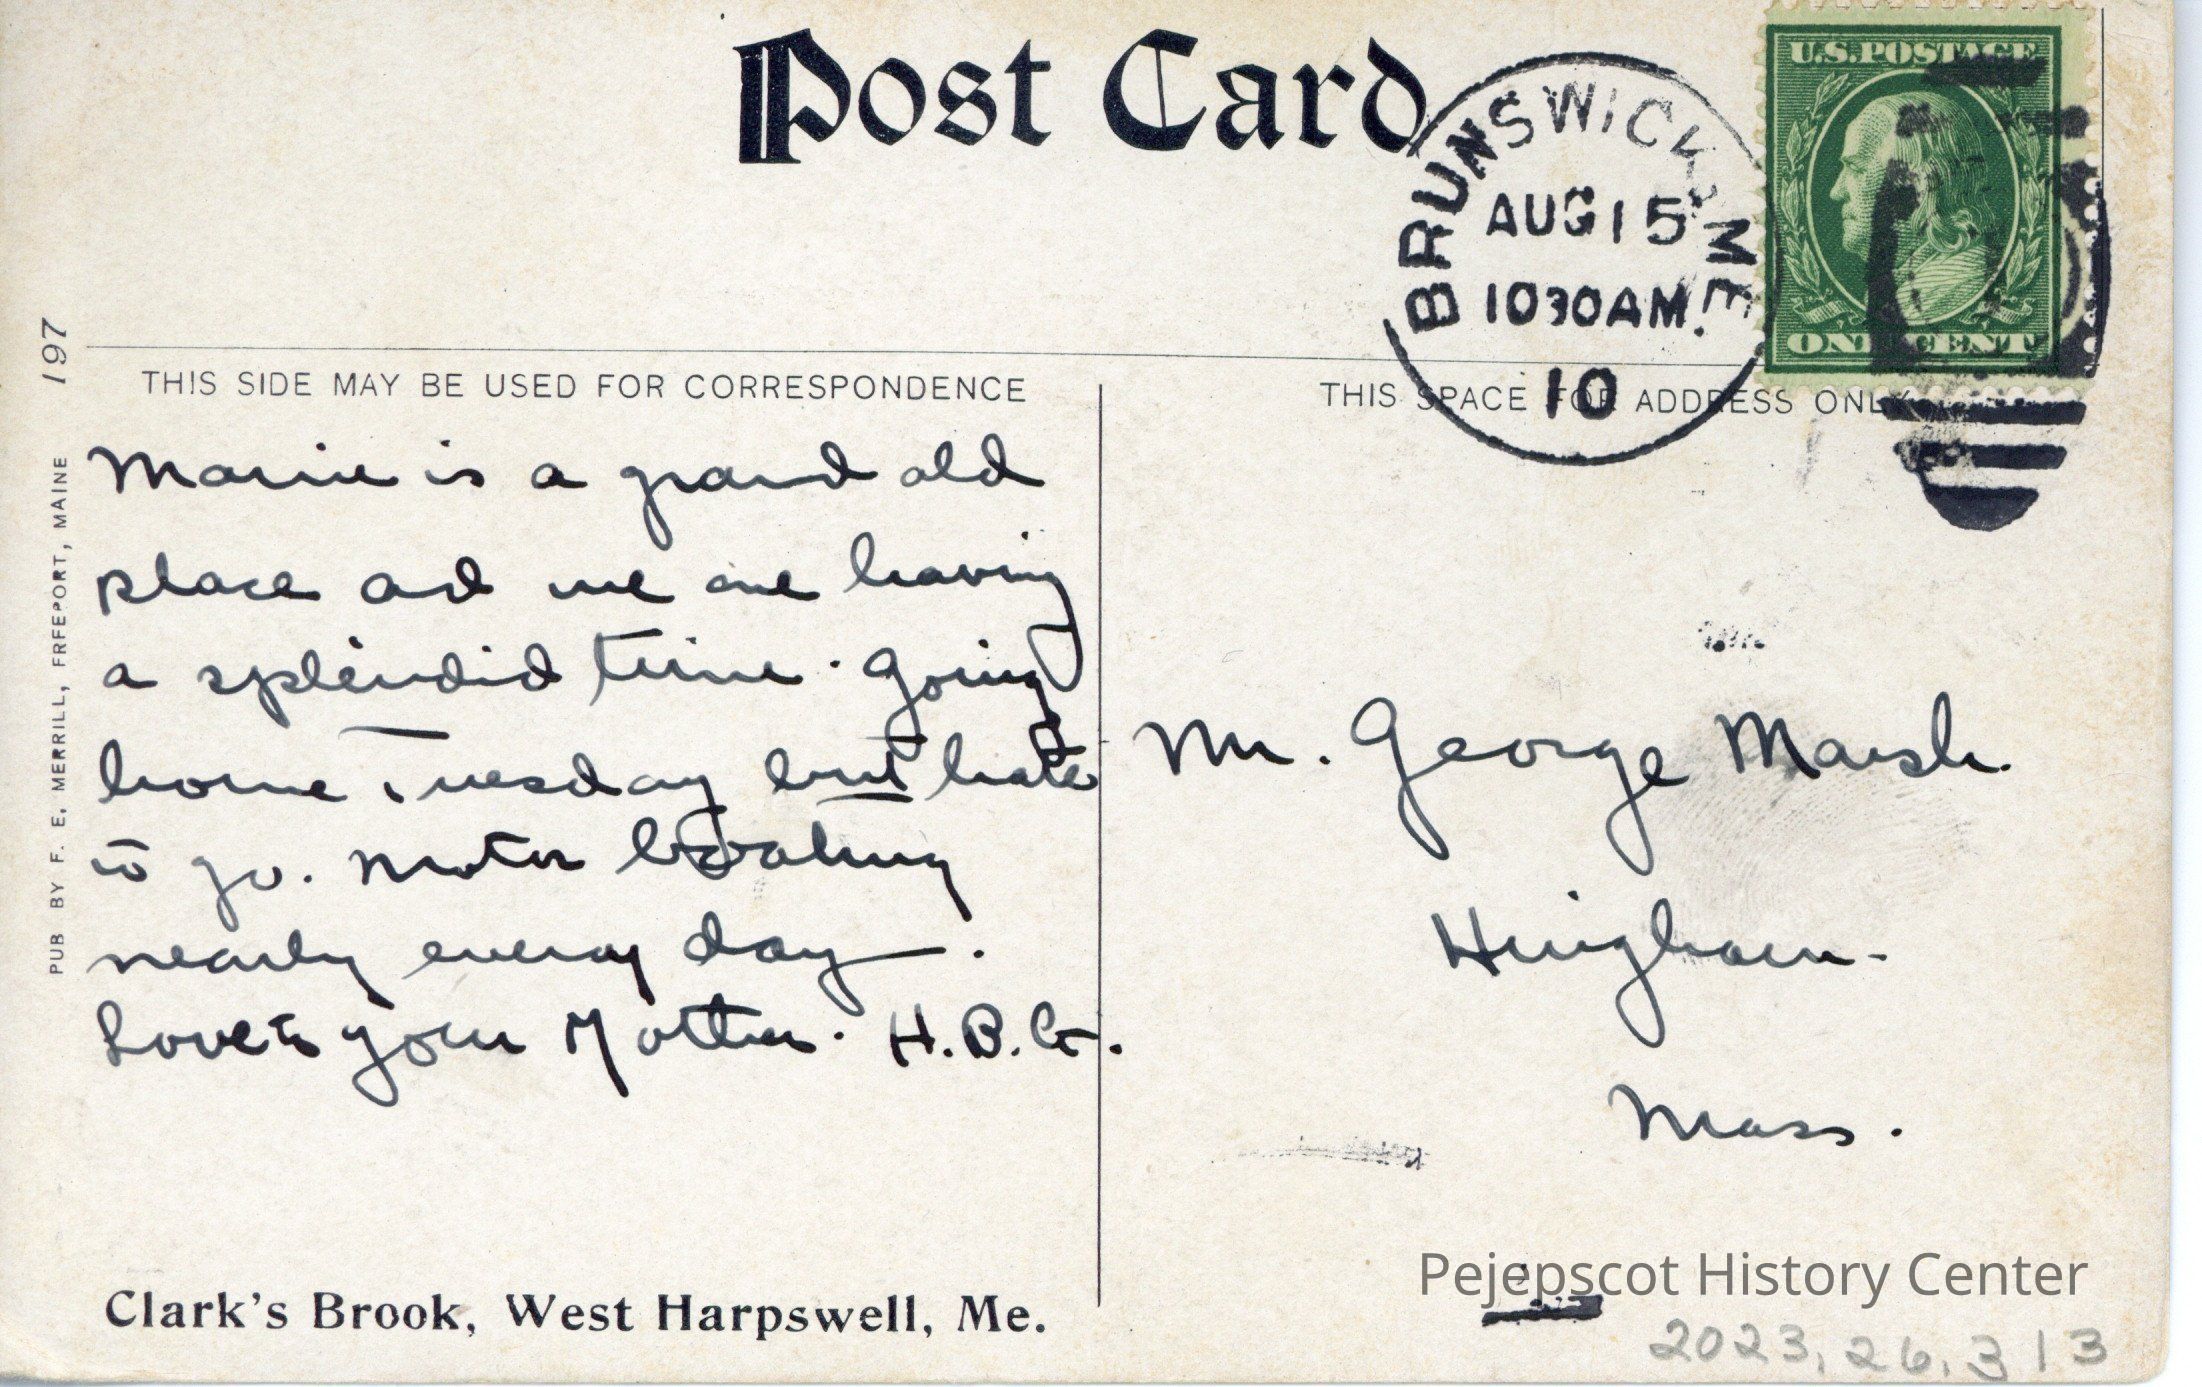 Post Card
BRUNSWICK, ME.
AUG 15
1030 AM
10
U.S. POSTAGE
ONE CENT
197
PUB BY F. E. MERRILL, FREEPORT, MAINE
THIS SIDE MAY BE USED FOR CORRESPONDENCE
THIS SPACE FOR ADDRESS ONLY
Maine is a grand old
place and we are having
a splendid time. Going
home Tuesday but hate
to go. Motor boating
nearly every day.
Love to your Mother. H.B.G.
Mr. George Marsh.
Hingham.
Mass.
Clark's Brook, West Harpswell, Me.
Pejepscot History Center
2023.26.313